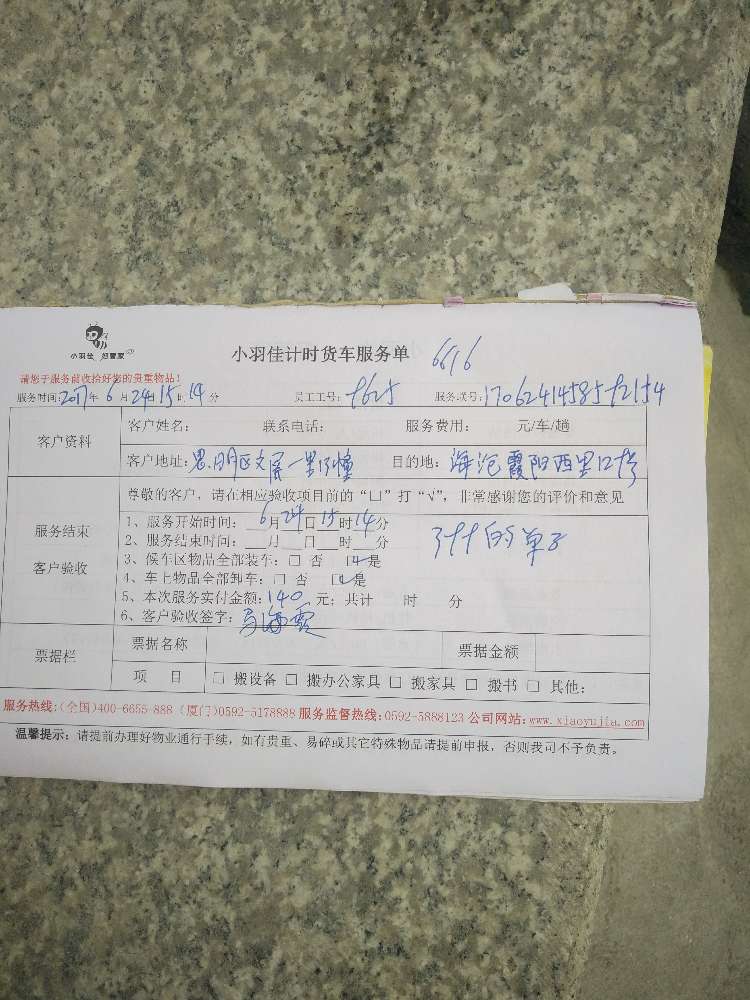 小羽佳 好管家
小羽佳计时货车服务单 6616
请您于服务前收拾好您的贵重物品！
服务时间：2017年6月24日15时14分 员工工号： 服务账号：
客户资料
客户姓名： 联系电话： 服务费用： 元/车/趟
客户地址：思明区文屏一里 目的地：海沧霞阳西里12号
服务结束
客户验收
尊敬的客户，请在相应验收项目前的“□”打“√”，非常感谢您的评价和意见
1、服务开始时间：6月24日15时14分
2、服务结束时间：__月__日__时__分
的单子
3、候车区物品全部装车：□ 否 ☑是
4、车上物品全部卸车：□ 否 ☑是
5、本次服务实付金额：140 元；共计 时 分
6、客户验收签字：马海霞
票据栏
票据名称 票据金额
项 目 □ 搬设备 □ 搬办公家具 □ 搬家具 □ 搬书 □ 其他：
服务热线：(全国)400-6655-888 (厦门)0592-5178888 服务监督热线：0592-5888123 公司网站：www.xiaoyujia.com
温馨提示：请提前办理好物业通行手续，如有贵重、易碎或其它特殊物品请提前申报，否则我司不予负责。